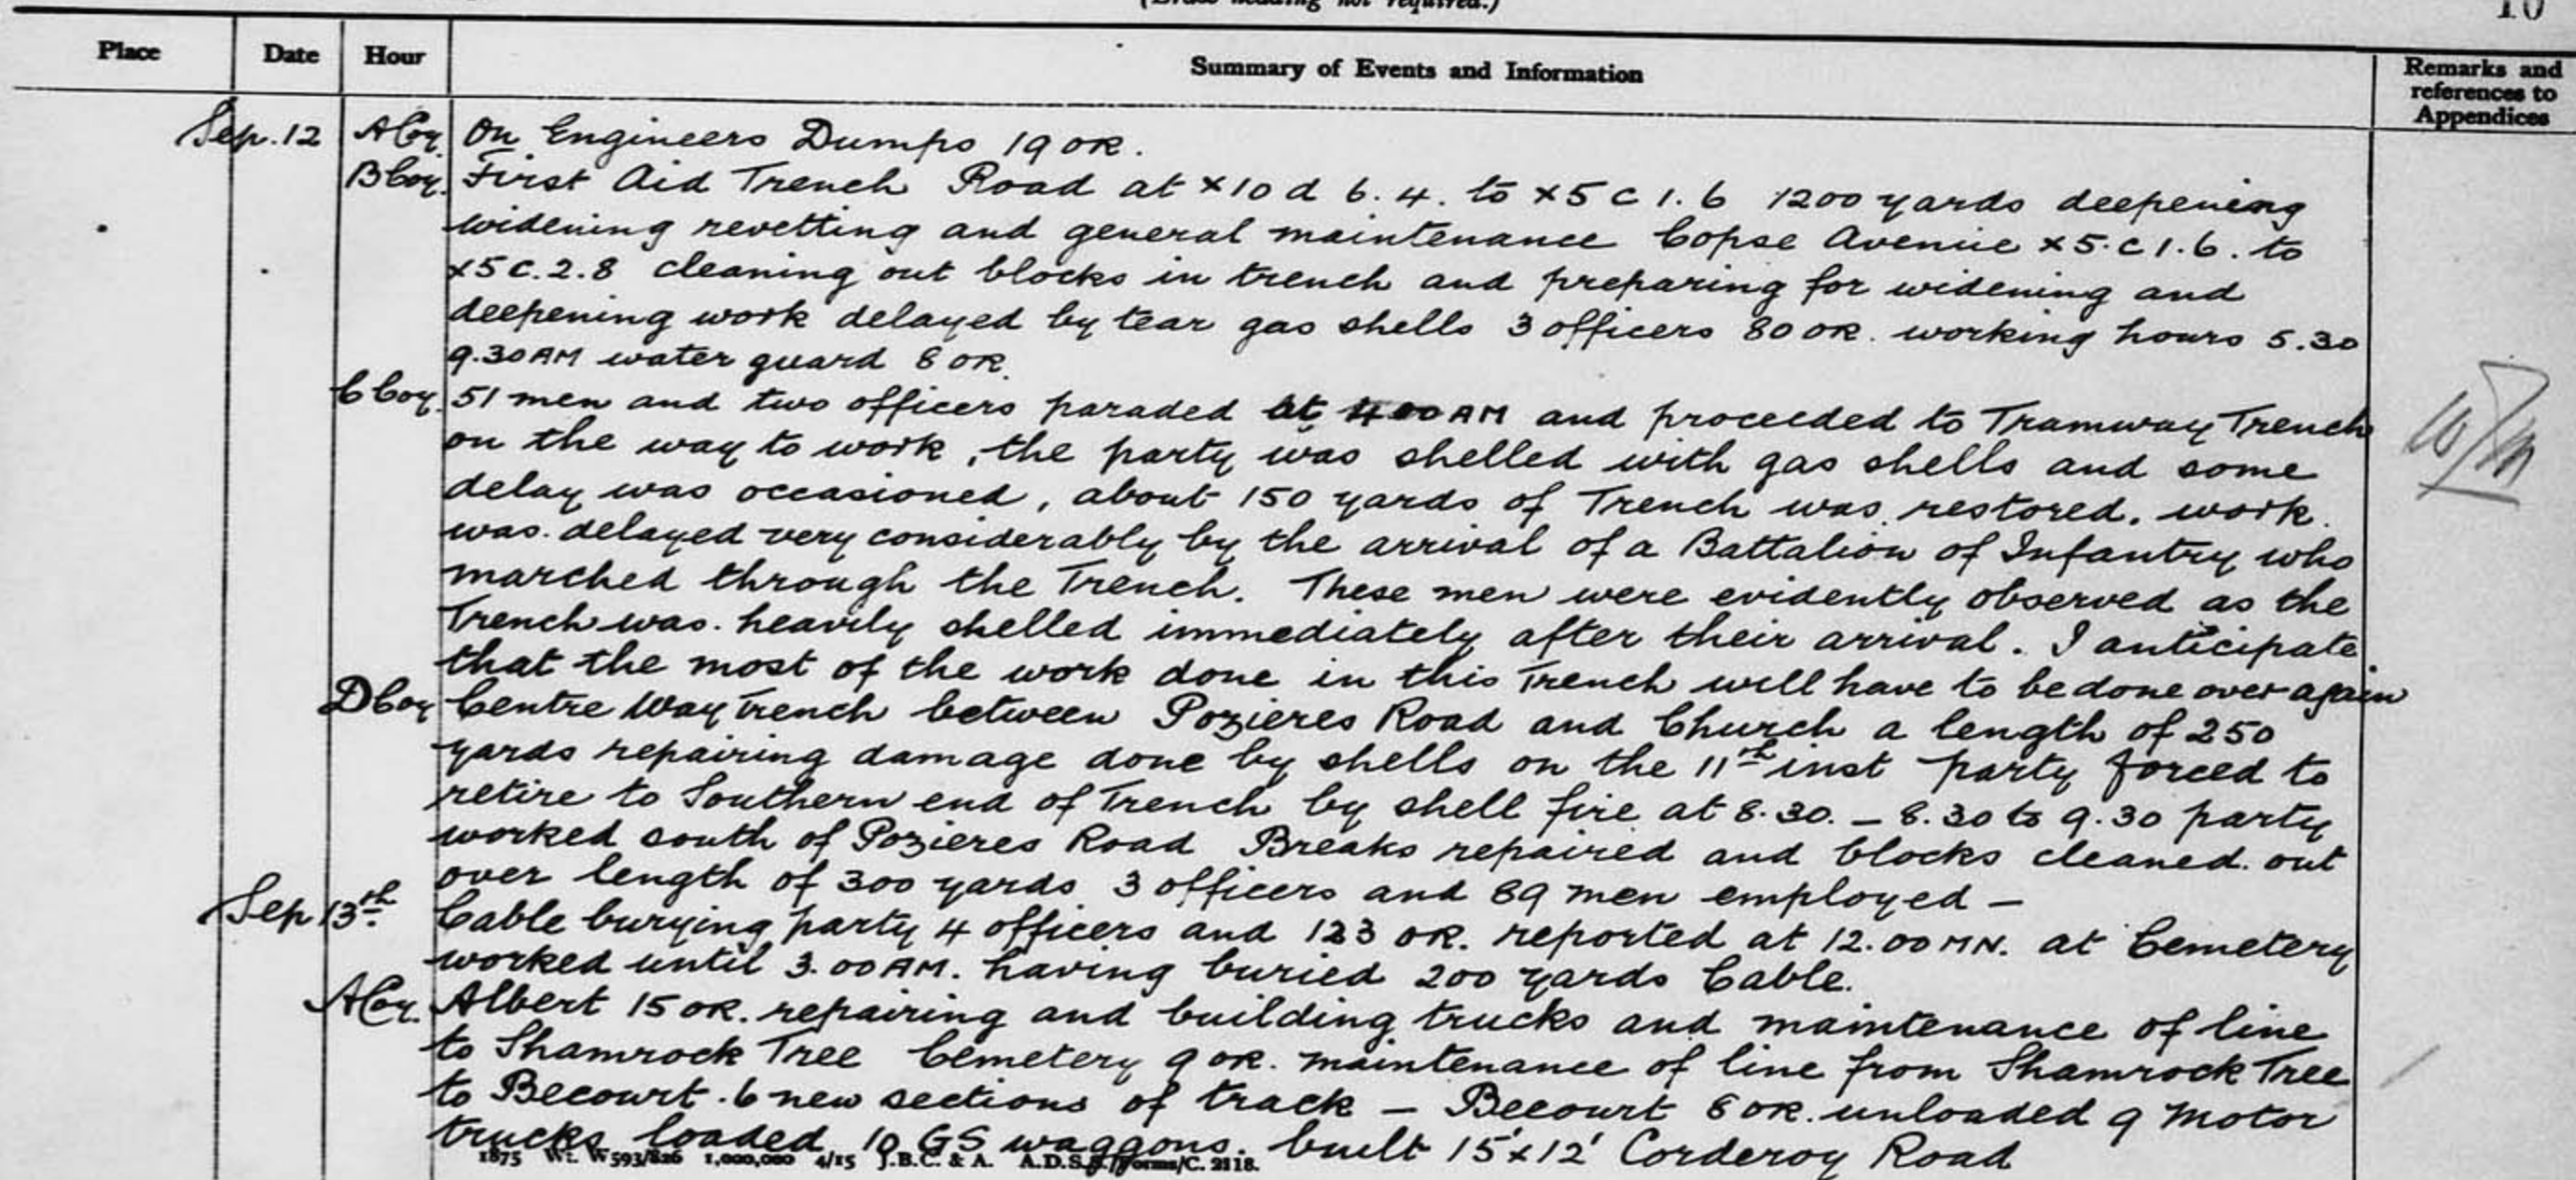 (Erase heading not required.)
10
Place Date Hour Summary of Events and Information Remarks and references to Appendices
Sep. 12 A Coy. On Engineers Dumps 19 OR.
B Coy. First Aid Trench Road at x10 d 6.4. to x5 c 1.6 1200 yards deepening
widening revetting and general maintenance Copse Avenue x5.c 1.6. to
x5 c.2.8 cleaning out blocks in trench and preparing for widening and
deepening work delayed by tear gas shells 3 officers 80 OR. working hours 5.30
9.30 AM water guard 8 OR.
C Coy. 51 men and two officers paraded at 4 00 AM and proceeded to Tramway Trench
on the way to work, the party was shelled with gas shells and some
delay was occasioned, about 150 yards of Trench was restored. work
was delayed very considerably by the arrival of a Battalion of Infantry who
marched through the Trench. These men were evidently observed as the
Trench was heavily shelled immediately after their arrival. I anticipate
that the most of the work done in this Trench will have to be done over again
D Coy Centre Way Trench between Pozieres Road and Church a length of 250
yards repairing damage done by shells on the 11th inst party forced to
retire to Southern end of Trench by shell fire at 8.30. – 8.30 to 9.30 party
worked south of Pozieres Road Breaks repaired and blocks cleaned out
over length of 300 yards 3 officers and 89 men employed –
Sep 13th Cable burying party 4 officers and 123 OR. reported at 12.00 MN. at Cemetery
worked until 3.00 AM. having buried 200 yards Cable.
A Coy. Albert 15 OR. repairing and building trucks and maintenance of line
to Shamrock Tree Cemetery 9 OR. maintenance of line from Shamrock Tree
to Becourt. 6 new sections of track – Becourt 8 OR. unloaded 9 Motor
trucks loaded 10 GS waggons. built 15'x12' Corderoy Road
1875 Wt. W593/826 1,000,000 4/15 J.B.C. & A. A.D.S.S./Forms/C. 2118.